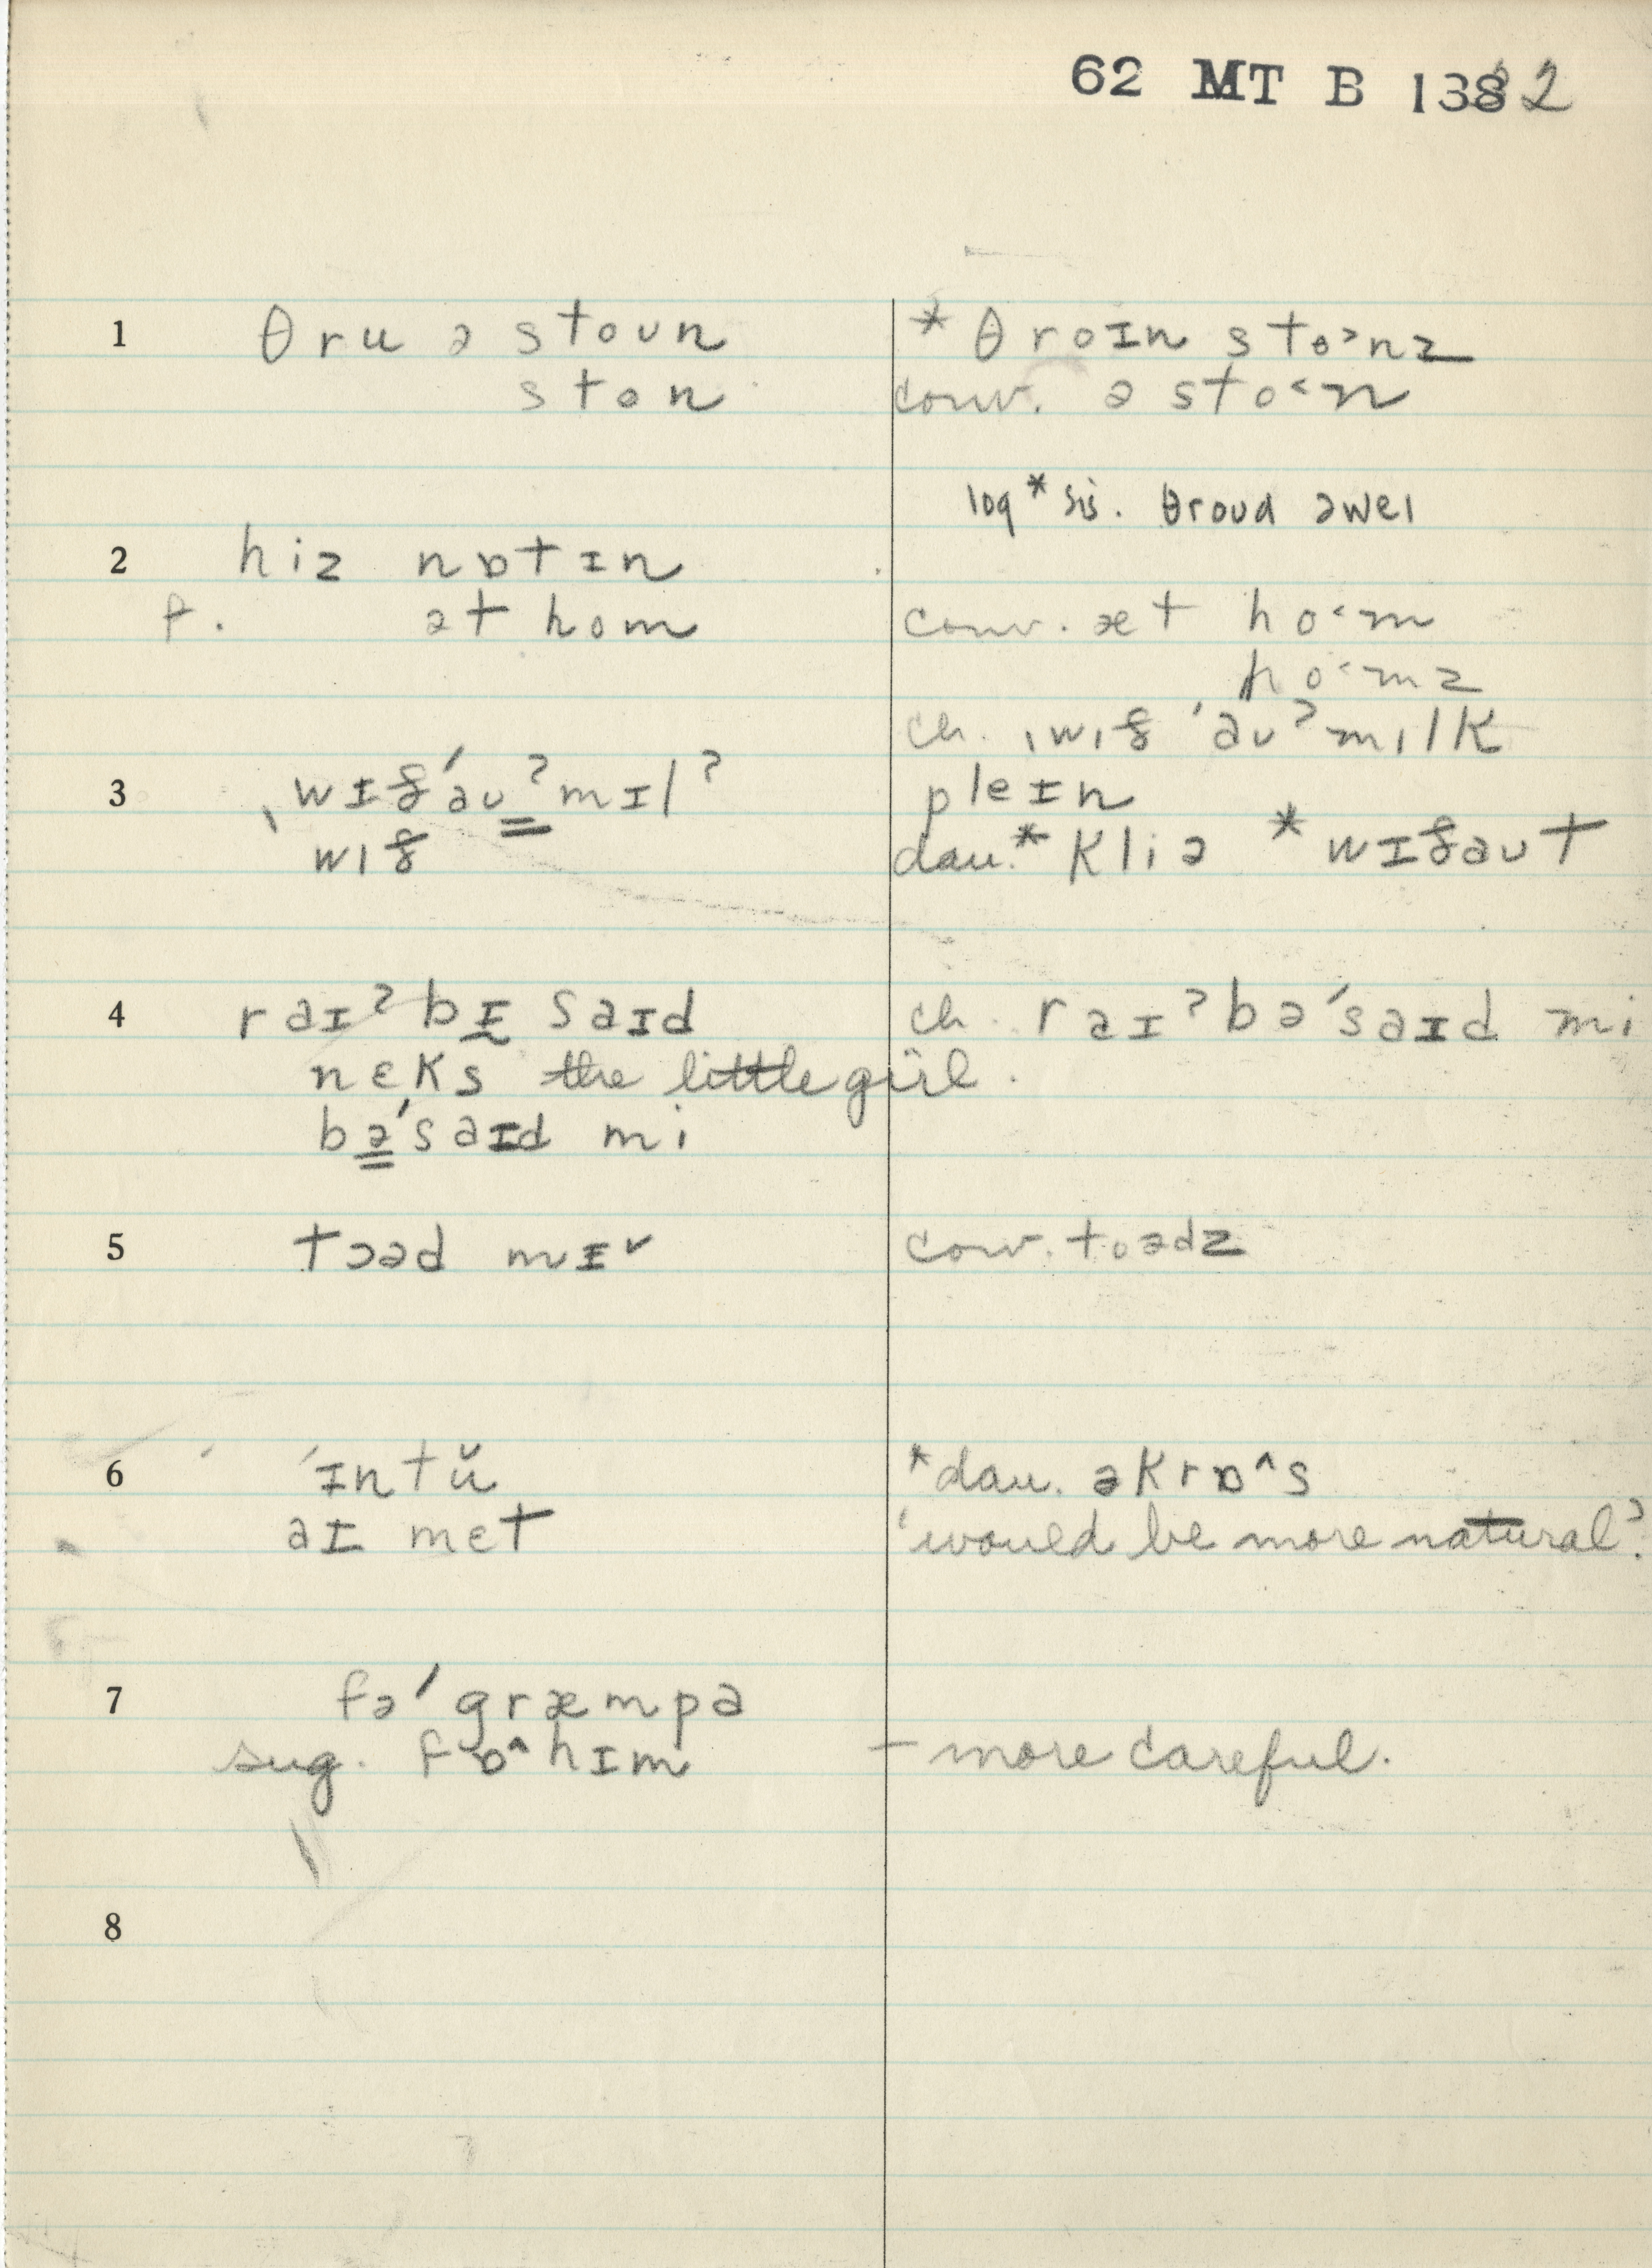 62 MT B 1382
1 θru ə stoun
ston
* θroɪn sto˃nz
conv. ə sto˂n
log * sis. θroud əweɪ
2 hiz nɒtɪn
f. ət hom
conv. æt ho˂m
ho˂mz
3 ˌwɪð'əuʔmɪlʔ
wið
ch. ˌwið 'əuʔmilk
pleɪn
dau.* kliə * wɪðaut
4 raɪʔbɪ saɪd
nɛks the little girl.
bə'saɪd mi
ch. raɪʔbə'saɪd mi
5 tɔəd mɪ˅
conv. toədz
6 'ɪntŭ
aɪ mɛt
*dau. əkrɒ^s
'would be more natural'.
7 fə'græmpə
sug. fɒ^hɪm – more careful.
8